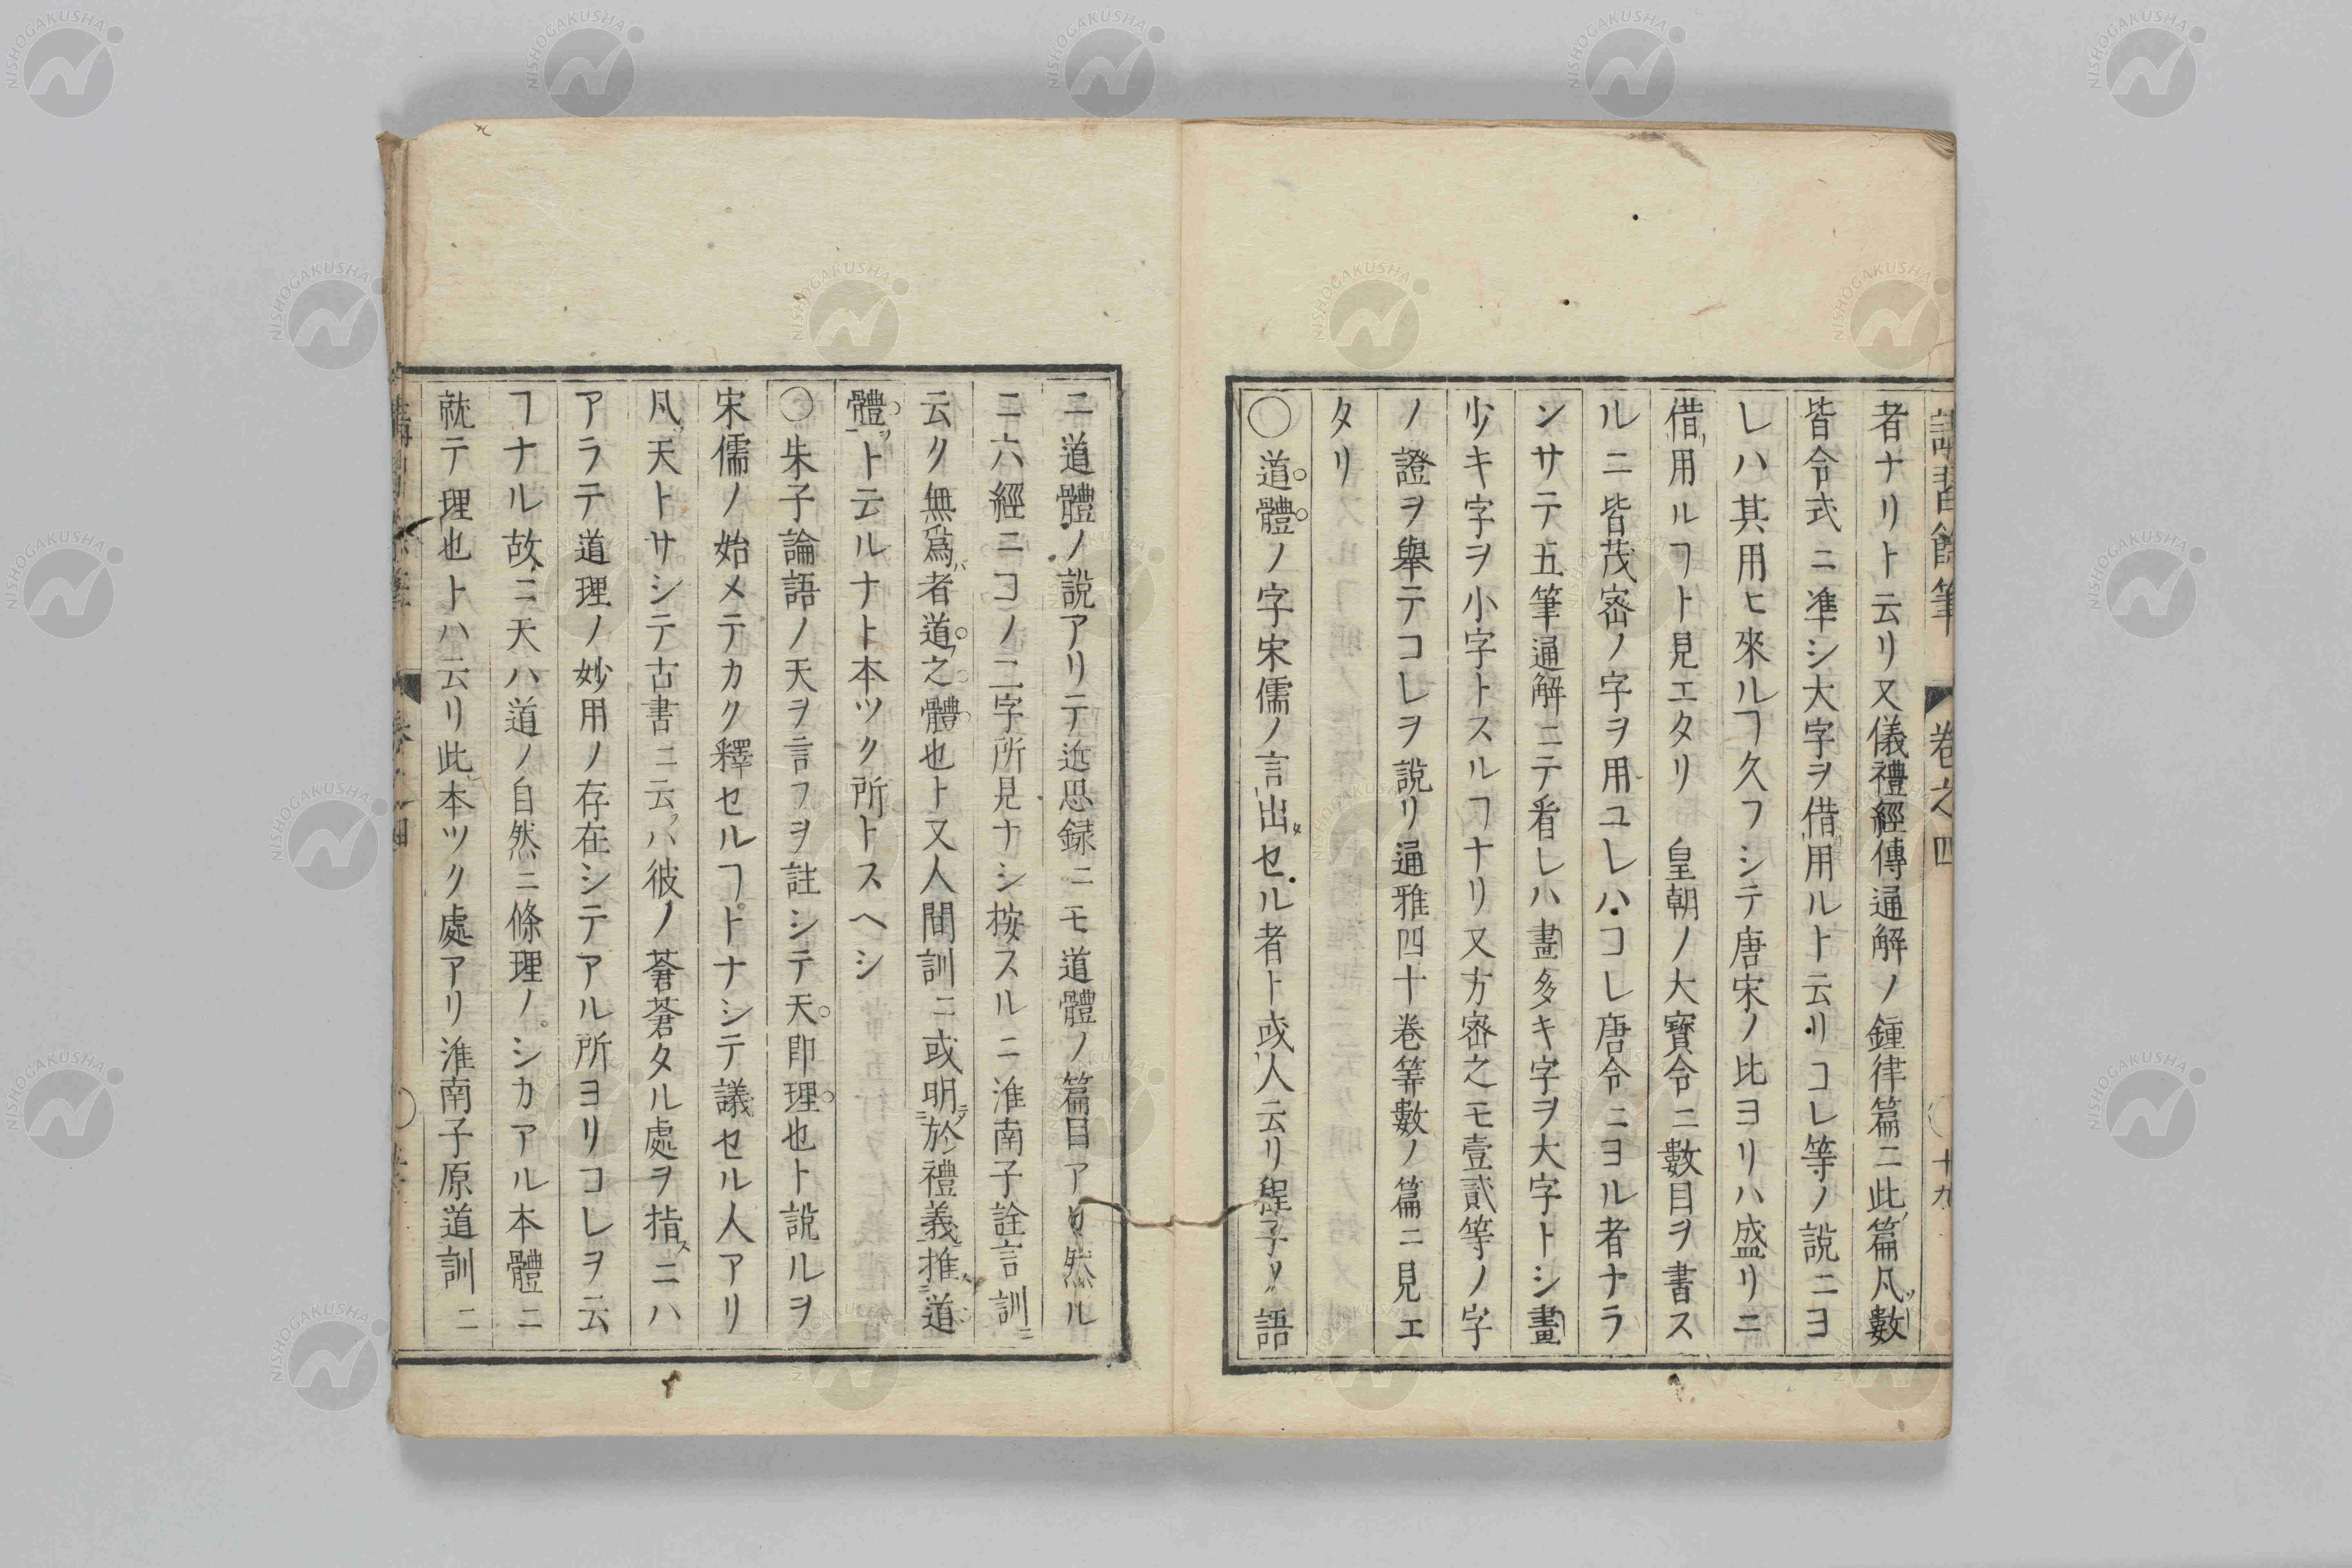 講習餘筆 卷之四 十九
者ナリト云リ又儀禮經傳通解ノ鍾律篇ニ此篇凡數
皆令式ニ準シ大字ヲ借用ルト云リコレ等ノ說ニヨ
レハ其用ヒ來ルヿ久フシテ唐宋ノ比ヨリハ盛リニ
借用ルヿト見エタリ 皇朝ノ大寶令ニ數目ヲ書ス
ルニ皆茂密ノ字ヲ用ユレハコレ唐令ニヨル者ナラ
ンサテ五筆通解ニテ看レハ畫多キ字ヲ大字トシ畫
少キ字ヲ小字トスルヿナリ又方密之モ壹貳等ノ字
ノ證ヲ舉テコレヲ說リ通雅四十卷筭數ノ篇ニ見エ
タリ
○道體ノ字宋儒ノ言出セル者ト或人云リ程子ノ語
ニ道體ノ說アリテ近思録ニモ道體ノ篇目アリ然ル
ニ六經ニコノ二字所見ナシ按スルニ淮南子詮言訓ニ
云ク無爲者道之體也ト又人間訓ニ或明於禮義推道
體ト云ルナト本ツク所トスヘシ
○朱子論語ノ天ヲ言フヲ註シテ天即理也ト說ルヲ
宋儒ノ始メテカク釋セルヿトナシテ議セル人アリ
凡天トサシテ古書ニ云ハ彼ノ蒼蒼タル處ヲ指ニハ
アラテ道理ノ妙用ノ存在シテアル所ヨリコレヲ云
ヿナル故ニ天ハ道ノ自然ニ條理ノシカアル本體ニ
就テ理也トハ云リ此本ツク處アリ淮南子原道訓ニ